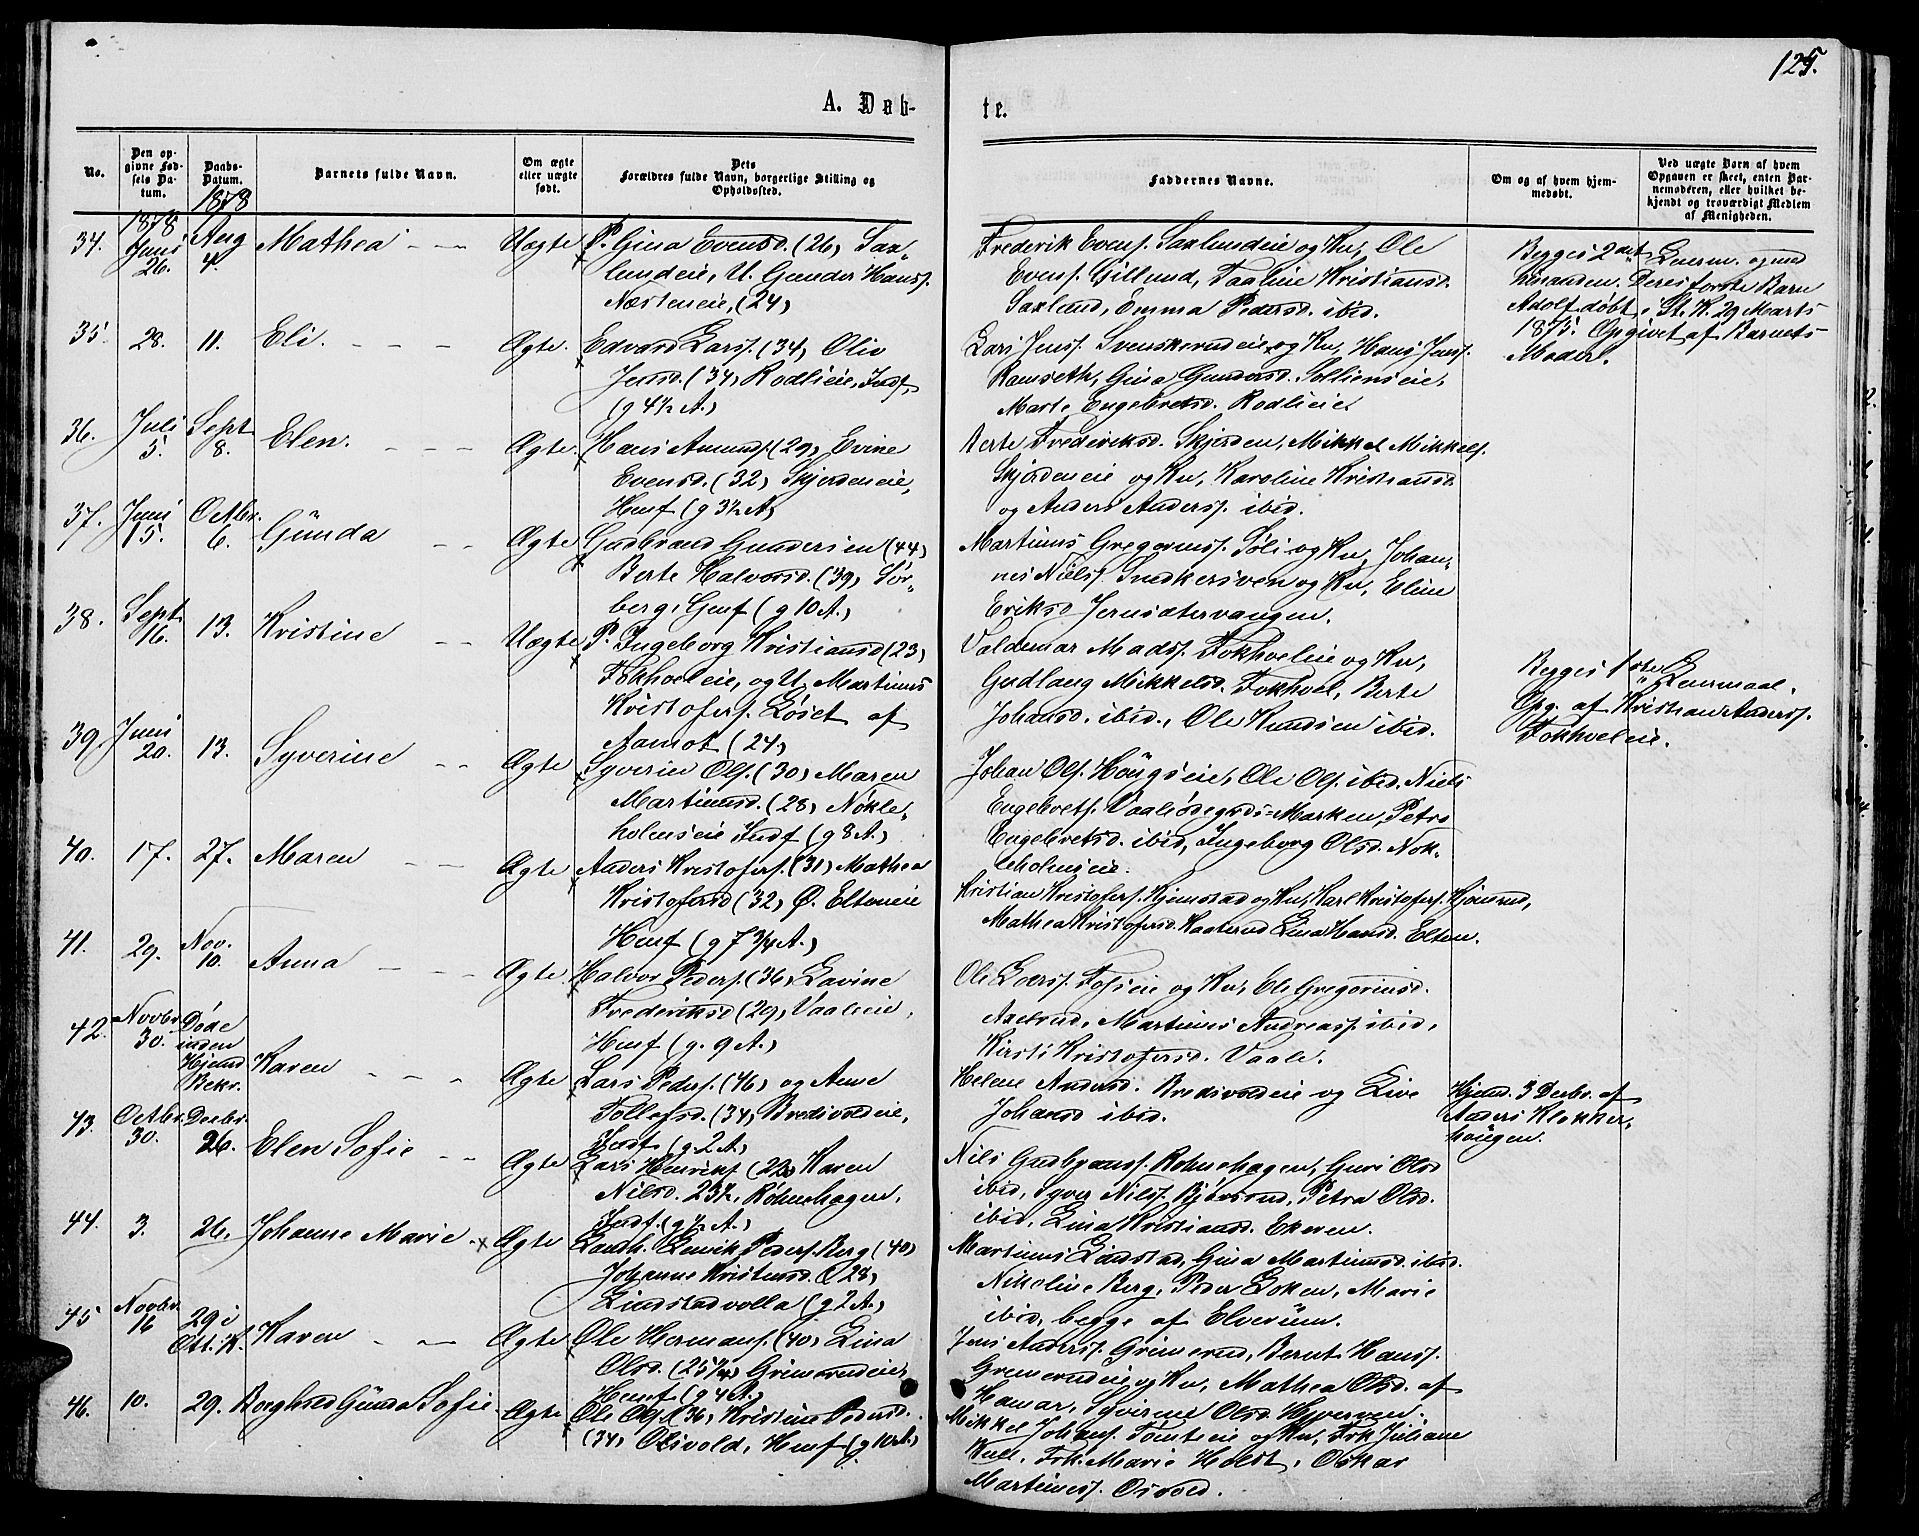 125.
A. Døb-
te.
No.
Den op-
givne Fød-
sels Da-
tum.
Daabs-
Datum.
Barnets fulde Navn.
Om ægte
eller uægte
født.
Dets
Forældres fulde Navn, borgerlige Stilling og
Opholdssted.
Faddernes Navne.
Om og af hvem hjem-
medøbt.
Ved uægte Børn af hvem
Opgaven er skeet, enten Bar-
nemoderen, eller hvilket be-
kjendt og troværdigt Medlem
af Menigheden.
1878
1878
34. Juni 26. Aug 4. Mathea Uægte P. Gina Evensd. (26) Sax-
lundeie, U. Gunder Hanss.
Næsteneie, (24)
Frederik Evens. Saxlundeie og Kn, Ole
Evens. Gillund, Taaline Kristiansd.
Saxlund, Emma Pedersd. ibid.
Begges 2det Leierm. og med
hinanden. Deres første Barn
Adolf døbt i St. K. 29 Marts
1875. Opgivet af Barnets
Moder.
35. 28. 11. Eli. Ægte. Edvard Larss. (34) Oliv
Jensd. (34) Rodlieie, Indf,
(g 4½ A.)
Lars Jenss. Svenskerudeie og Kn, Hans Jenss.
Ramseth, Gina Gundersd. Sollienseie,
Marte Engebretsd. Rodlieie.
36. Juli 5. Sept 8. Elen. Ægte. Hans Amunds. (29) Evine
Evensd. (32) Skjerdeneie,
Husf (g 3½ A)
Berte Frederiksd. Skjerden, Mikkel Mikkels.
Skjerdeneie og Kn, Karoline Kristiansd.
og Anders Anderss. ibid.
37. Juni 15. Octbr. 6. Günda Ægte Gudbrand Gundersen (44)
Berte Halvorsd. (39) Sør-
berg, Husf (g 10 A.)
Martinus Gregoriuss. Søli og Kn, Johan-
nes Niels. Snekkersveen og Kn, Eline
Eriksd Jernsætervangen.
38. Sept 16. 13. Kristine Uægte P. Ingeborg Kristiansd (23)
Fokholeie, og U. Martinus
Kristofers. Løset af
Aamot (24)
Valdemar Madss. Fokholeie og Kn,
Gudlaug Mikkelsd. Fokhol, Berte
Johansd. ibid., Ole Knudsen ibid.
Begges 1ste Leiermaal.
Opg. af Kristian Anderss.
Fokholeie.
39. Juni 20. 13. Syverine Ægte Syverin Ols. (30) Maren
Martinusd. (28) Nøkle-
holmseie Indf (g 8 A.)
Johan Ols. Høugseie, Ole Ols. ibid. Niels
Engebrets. Vaalødegrds-Marken, Petra
Engebretsd. ibid, Ingeborg Olsd. Nøk-
leholmseie.
40. 17. 27. Maren Ægte Anders Kristofers. (31) Mathea
Kristofersd (32) Ø. Elteneie
Husf (g 7¾ A.)
Kristian Kristofers. Kjemstad og Kn, Karl Kristofers. Kjønrud,
Mathea Kristofersd. Kaaterud Lina Hansd. Elten.
41. 29. Nov. 10. Anna Ægte Halvor Peders. (36) Lavine
Frederiksd (29) Vaaleeie,
Husf (g. 9 A.)
Ole Larss. Fosseie og Kn, Ele Gregoriusd.
Axelrud, Martinus Andreass. ibid,
Kirsti Kristofersd. Vaale.
42. Novbr. 30. Døde
inden
Hjemd
Bekr. Karen Ægte Lars Peders. (46) og Anne
Tollefsd. (34) Bredevoldeie,
Indf. (g. 2 A.)
Helene Andersd. Bredevoldeie og Live
Johansd ibid.
Hjemd. 3 Decbr. af
Anders Klokker-
høugen.
43. Octbr. 30. Decbr. 26. Elen Sofie Ægte Lars Henriks. (22) Karen
Nilsd. 23½, Røhnehagen,
Indf. (g ½ A.)
Nils Gudbrandss. Røhnehagen, Guri Olsd
ibid, Syver Nilss. Bjørsrud, Petra Olsd.
ibid, Lina Kristiansd. Ekeren.
44. 3. 26. Johanne Marie Ægte Landh. Henrik Peders. Berg (40)
Johanne Kristensd. (28)
Lindstadvolla (g 2 A.)
Martinus Lindstad, Gina Martinusd. ibid.
Nikoline Berg, Peder Løken, Marie
ibid, begge af Elverüm.
45 Novbr. 16 29 i
Ott. K. Karen Ægte Ole Hermans. (40) Lina
Olsd. (25¼) Grimerudeie,
Husf (g 4 A.)
Jens Anderss. Grimerud, Bernt Hanss.
Grimerudeie og Kn, Mathea Olsd. af
Hamar, Syverine Olsd. Hverven.
46. 10. 29. Borghild Günda Sofie Ægte Ole Ols. (36) Kristine Pedersd.
(34) Osvold, Husf (g 10 A.)
Mikkel Johans. Tomteie og Kn, Frk Juliane
Krell, Frk. Marie Holst, Oskar
Martinuss. Osvold.